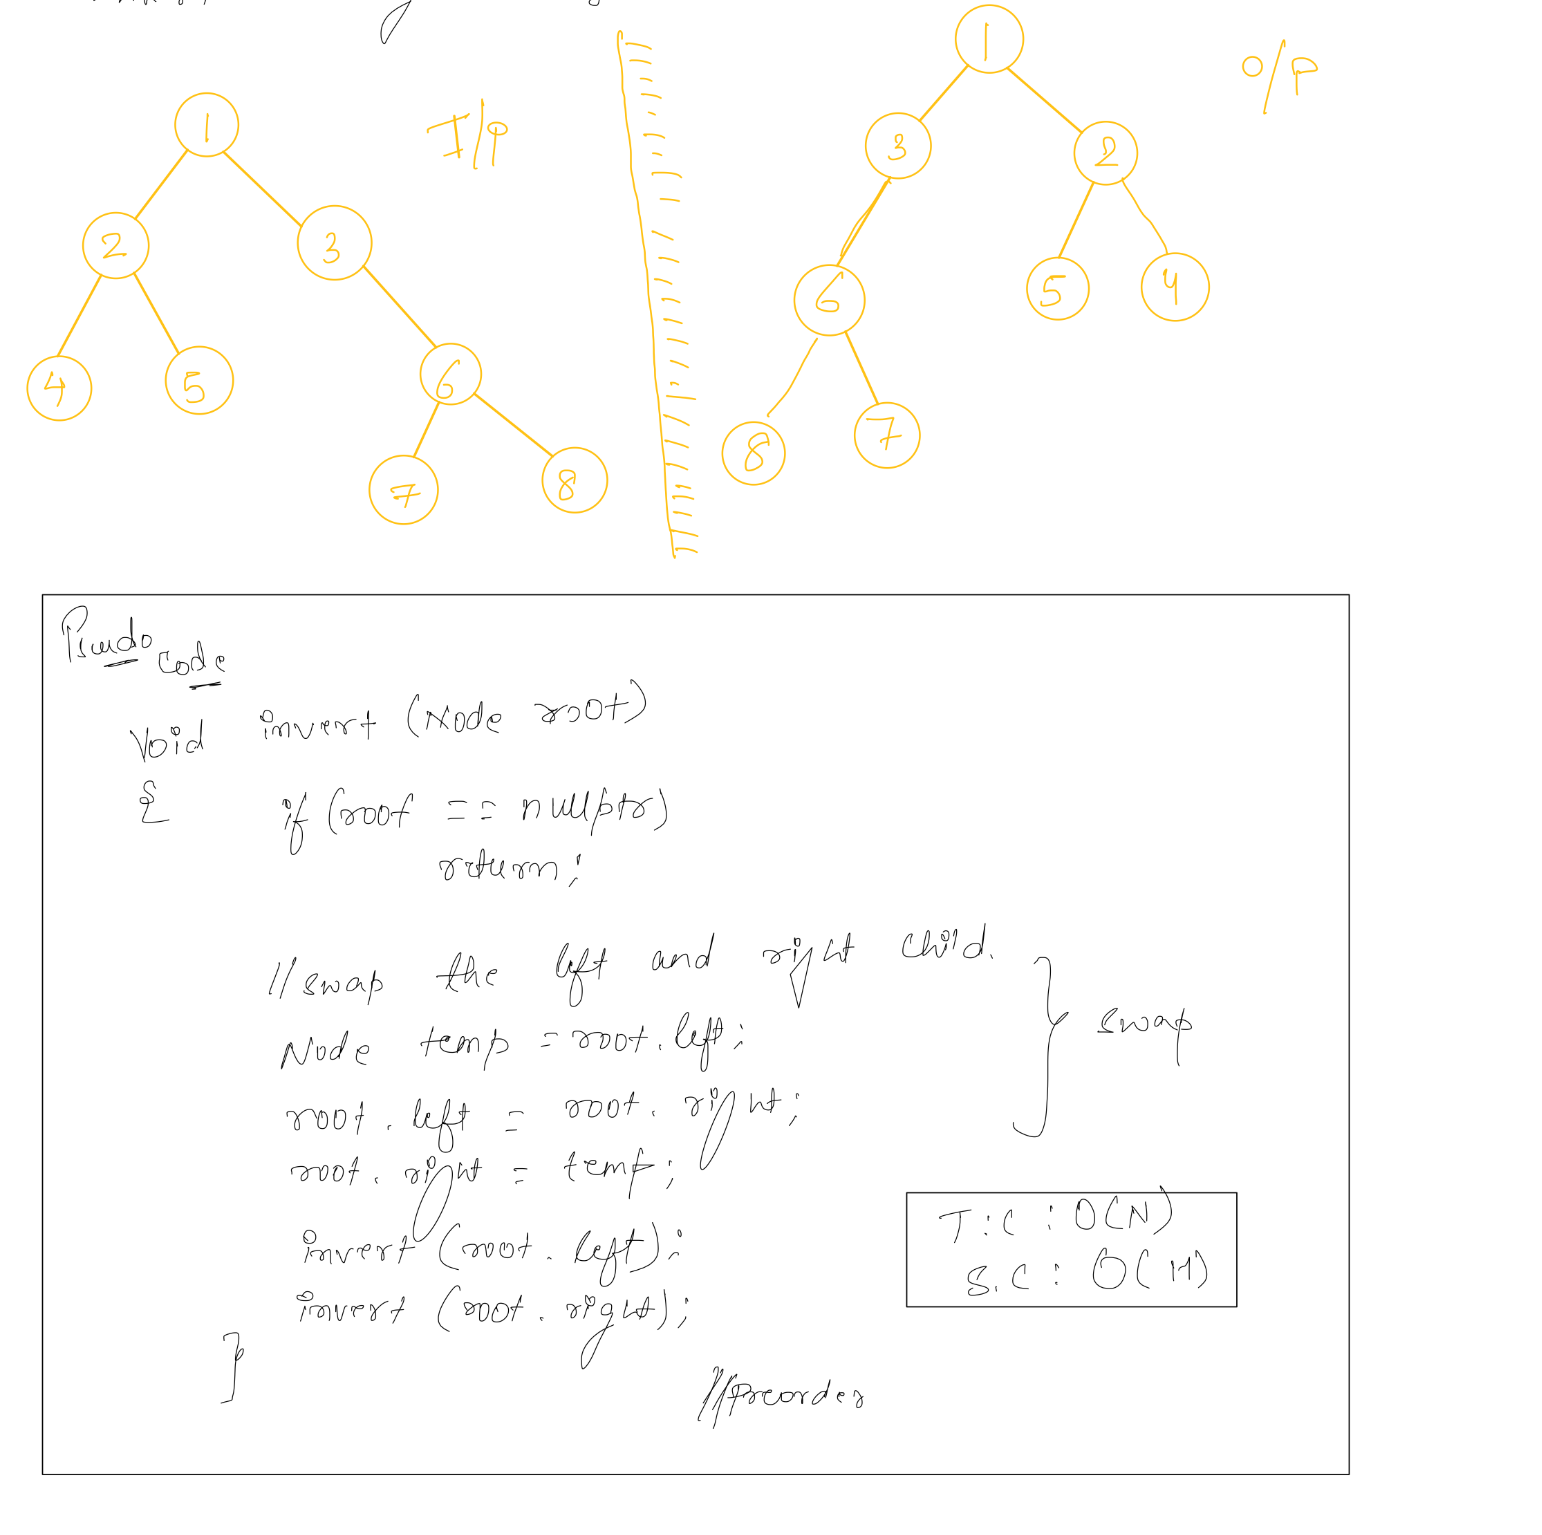 I/P
1
2
3
4
5
6
7
8
O/P
1
3
2
6
5
4
8
7
Pseudo
code
Void invert (Node root)
{
if (root == nullptr)
return;
// swap the left and right child.
Node temp = root.left;
root.left = root.right;
root.right = temp;
swap
invert (root.left);
invert (root.right);
}
T:C : O(N)
S.C : O(H)
//Preorder